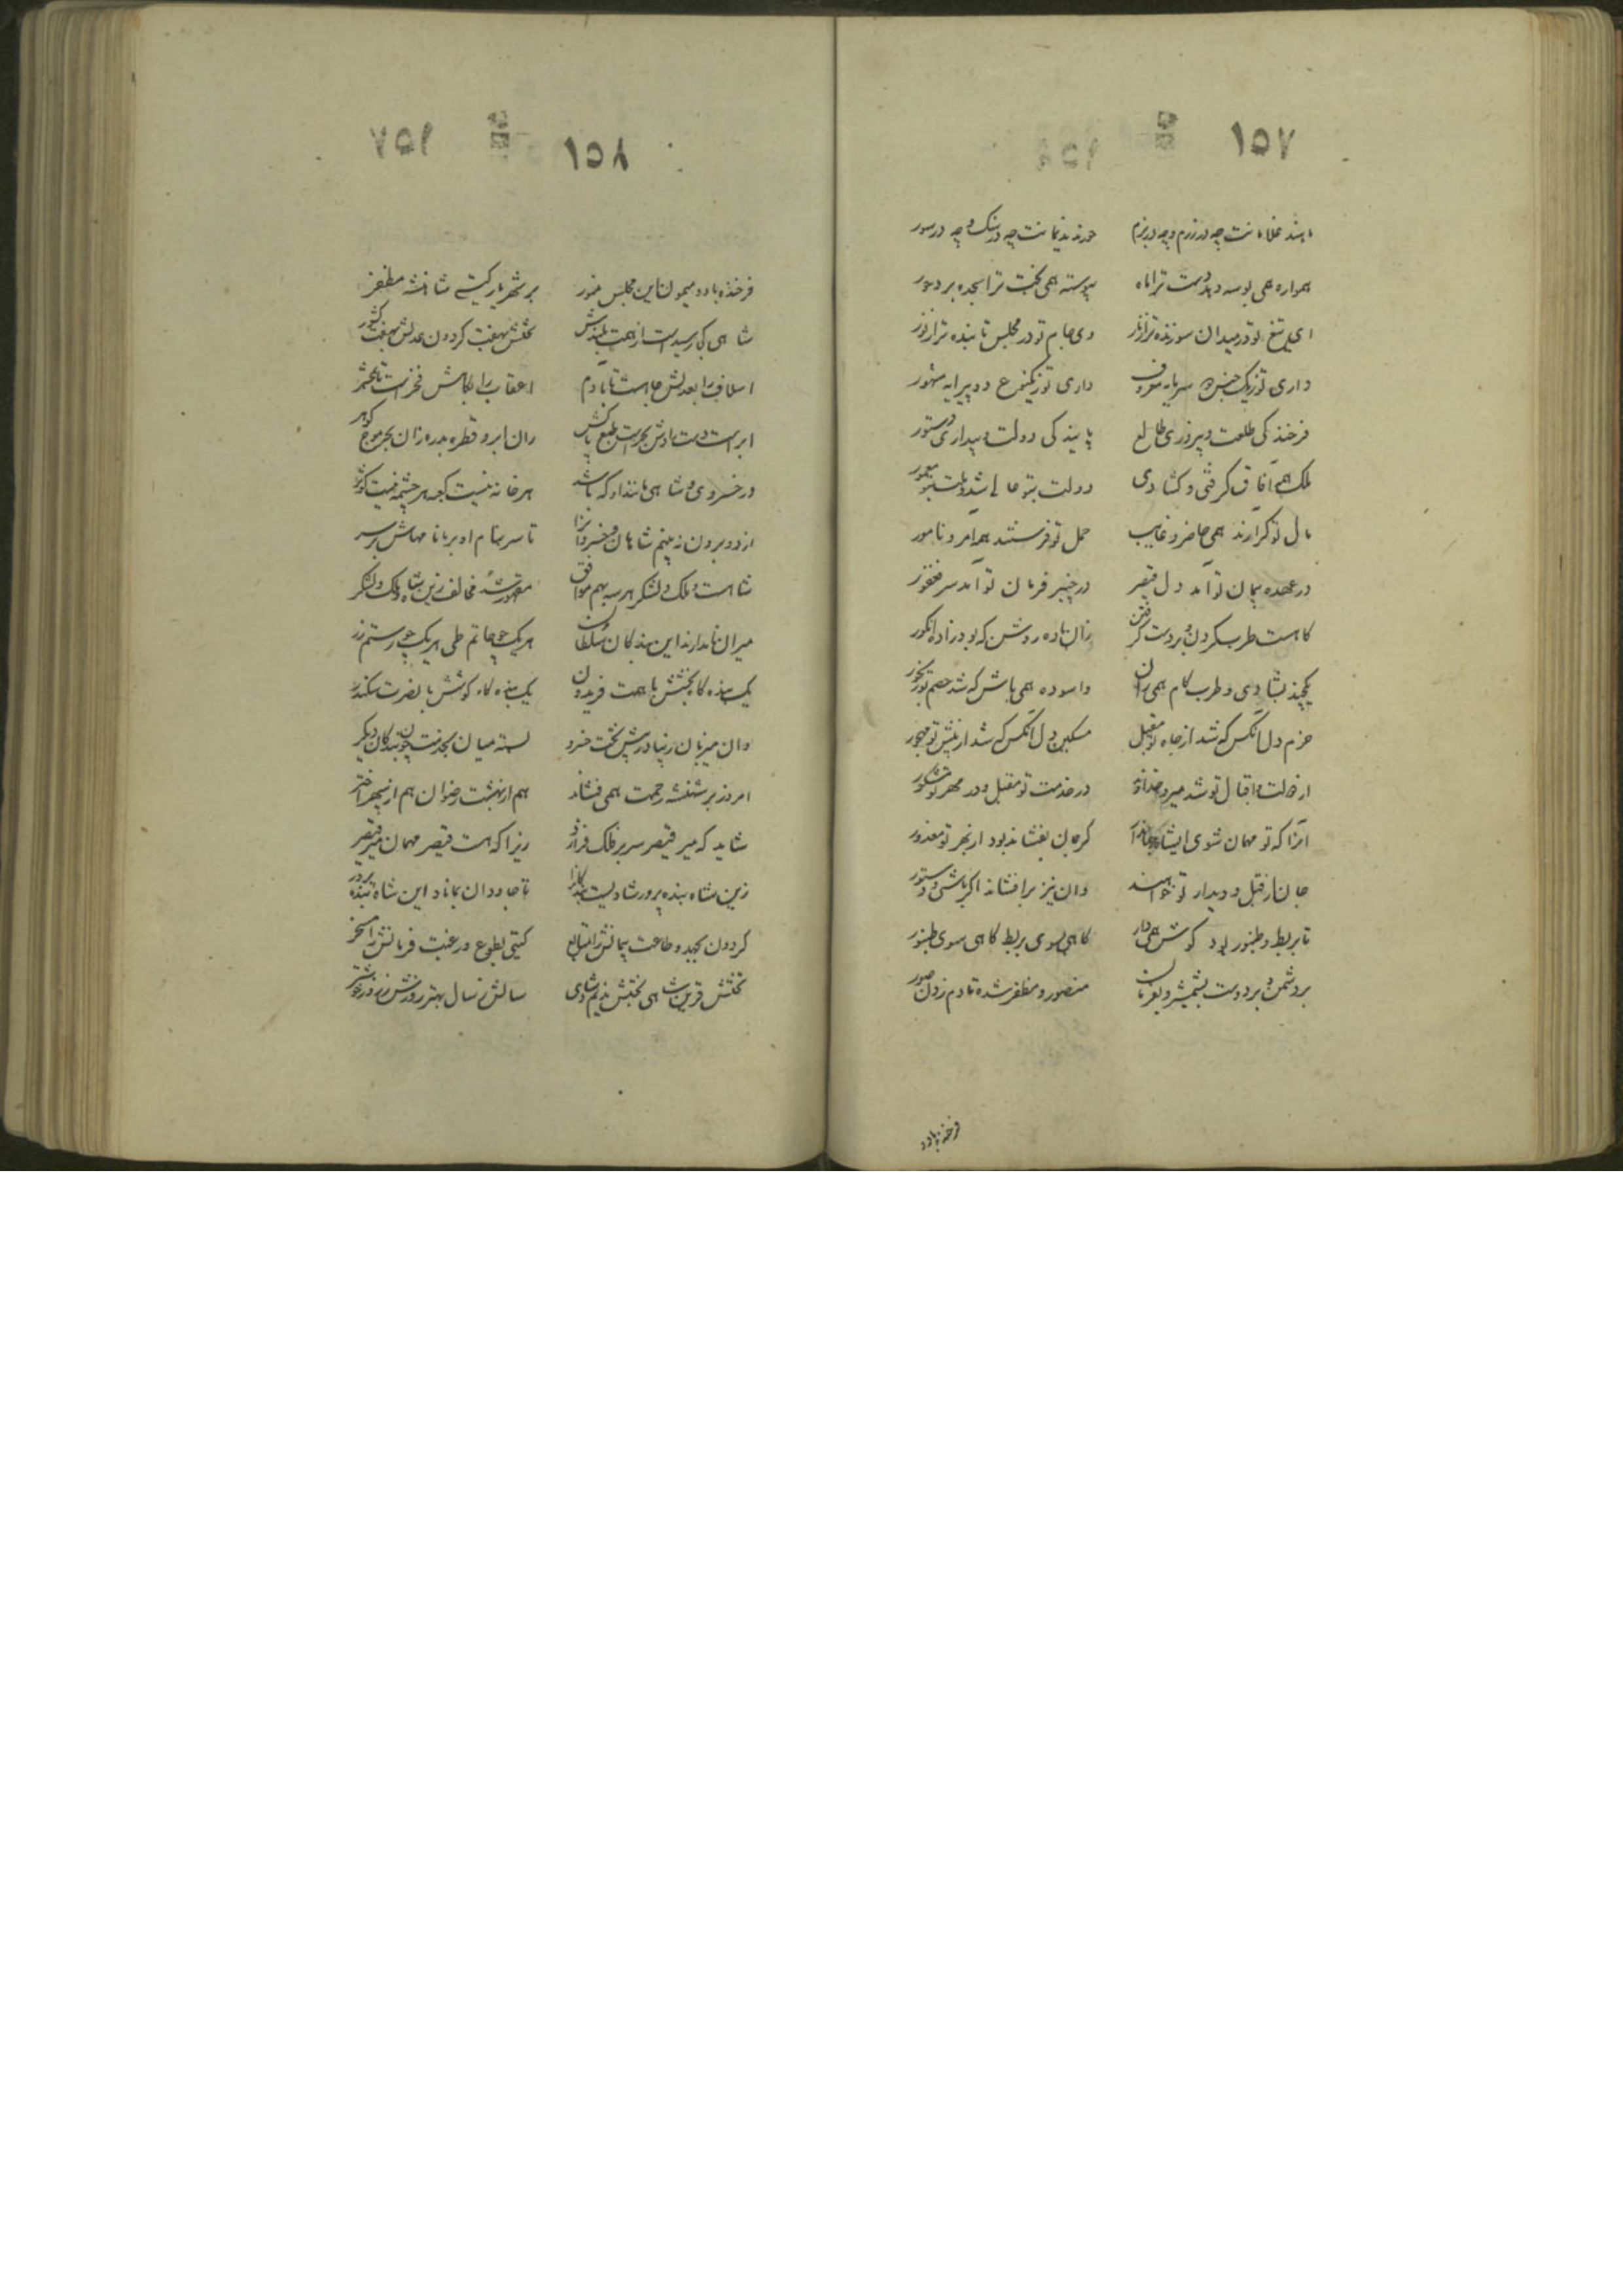 ١٥٧
مانند غلامانت چه در رزم و چه در بزم خورند ندیمانت چه در سنک و چه در سور
همواره همی بوسه دهد دست ترا ماه پیوسته همی بخت ترا سجده برد هور
ای تیغ تو در میدان سوزنده تر از نار وی جام تو در مجلس تابنده تر از نور
داری تو ز یک جنس سرمایه معروف داری تو ز یک نوع دو پیرایه مشهور
فرخندکی طلعت و پیروزی طالع پایندکی دولت و بیداری دستور
ملک همه آفاق کرفتی و کشادی دولت بتو عالی شد و ملت بتو معمور
مال تو کزارند همی حاضر و غایب حمل تو فرستند همه آمر و مامور
در عهده پیمان تو آمد دل قیصر در چنبر فرمان تو آمد سر فغفور
کاهست طرب کردن و بر دست کرفتن زان باده روشن که بود زاده انکور
یکچند بشادی و طرب کام همی ران واسوده همی باش که شد خصم تو رنجور
خرم دل آنکس که شد از جاه تو مقبل مسکین دل آنکس که شد از پیش تو مهجور
از دولت و اقبال تو شد میر در خدمت تو مقبل و در مهر تو مشکور
آنرا که تو مهمان شوی ای شاه جهاندار کر جان بفشاند بود از بهر تو معذور
جان از قبل دیدار تو خواهند وان نیز برافشاند اکر باشی دستور
تا بربط و طنبور بود کوش همی دار کاهی سوی بربط کاهی سوی طنبور
بر دشمن و بر دوست بشمشیر و بفرمان منصور و مظفر شده تا دم زدن صور
فرخنده باد و
١٥٨
فرخنده باد و میمون این مجلس منور بر شهریار کیتی شاهنشه مظفر
شاهی که بر رسیدست از همت بلندش تختش بهفت کردون عدلش بهفت کشور
اسلاف را بعدلش جاهست تا بآدم اعقاب را بکامش فخرست تا بمحشر
ابرست دست رادش بحرست طبع پاکش زان ابر قطره بدره زان بحر موج کوهر
در خسروی و شاهی مانند او که باشد هر خانه نیست کعبه هر چشمه نیست کوثر
از دو برون نبینم شاهان و خسروانرا تا سر بنام او بر یا نامهاش بر سر
شاهست و ملک و لشکر هر سه بهم موافق مقهور شد مخالف زین شاه و ملک و لشکر
میران نامدارند این بندکان سلطان هر یک چو حاتم طی هر یک چو رستم زر
یک بنده کاه بخشش با همت فریدون یک بنده کاه کوشش با نصرت سکندر
وان میزبان زیبا در پیش تخت خسرو بسته میان بخدمت چون بندکان دیکر
امروز بر شهنشه رحمت همی فشاند هم از بهشت رضوان هم از سپهر اختر
شاید که میر قیصر سر بر فلک فرازد زیرا که هست قیصر مهمان میر قیصر
زین شاه بنده پرور شادیست بندکانرا تا جاودان بماناد این شاه بنده پرور
کردون بجهد و طاعت پیمانش را متابع کیتی بطوع و رغبت فرمانش را مسخر
تختش قرین شاهی بختش ندیم شادی سالش ز سال بهتر روزش ز روز خوشتر